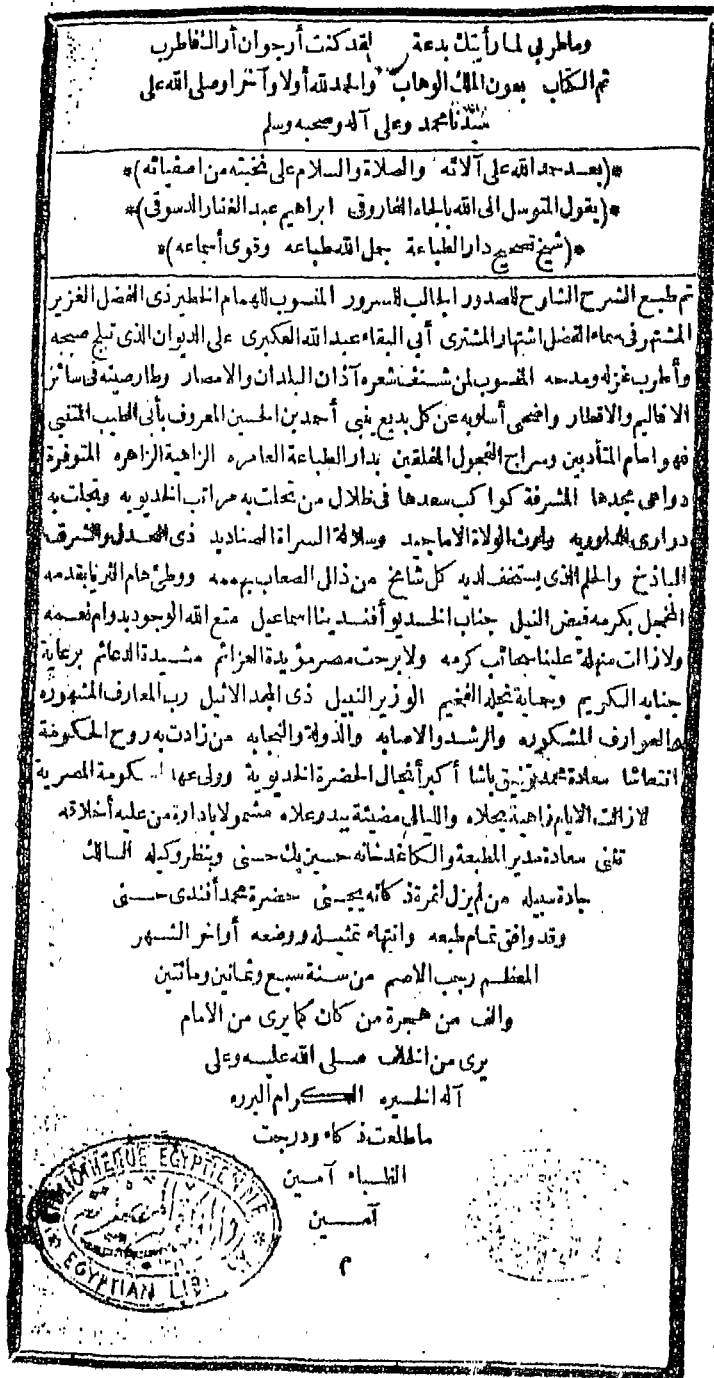 وما طربي لما رأيتك بدعة لقد كنت أرجو ان أراك فاطرب
تم الكتاب بعون الملك الوهاب والحمد لله أولا وآخرا وصلى الله على
سيدنا محمد وعلى آله وصحبه وسلم
*(بعد حمد الله على آلائه والصلاة والسلام على نخبته من اصفيائه)*
*(يقول المتوسل الى الله بالجاه الفاروقى ابراهيم عبد الغفار الدسوقى)*
*(شيخ تصحيح دار الطباعة جمل الله طباعه وقوى أسماعه)*
تم طبع الشرح الشارح للصدور الجالب للسرور المنسوب للهمام الخطير ذى الفضل الغزير
المشتهر فى سماء الفضل اشتهار المشترى أبى البقاء عبد الله العكبرى على الديوان الذى تبلج صبحه
وأطرب غزله ومدحه المنسوب لمن شنف شعره آذان البلدان والامصار وطار صيته فى سائر
الاقاليم والاقطار واضحى أسلوبه عن كل بديع ينبى أحمد بن الحسين المعروف بأبى الطيب المتنبى
فهو امام المتأدبين وسراج الفحول المفلقين بدار الطباعة العامره الزاهية الزاهره المتوفرة
دواعى مجدها المشرقة كواكب سعدها فى ظلال من تحلت به مراتب الخديويه وتجلت به
درارى الداوريه وارث الولاة الاماجد وسلالة السراة الصناديد ذى العدل والشرف
الباذخ والحلم الذى يستخف لديه كل شامخ من ذلل الصعاب بهممه ووطئ هام الثريا بقدمه
المخجل بكرمه فيض النيل جناب الخديو أفندينا اسماعيل متع الله الوجود بدوام نعمه
ولا زالت منهلة علينا سحائب كرمه ولا برحت مصر مؤيدة العزائم مشيدة الدعائم برعاية
جنابه الكريم وبحماية نجله الفخيم الوزير النبيل ذى المجد الاثيل رب المعارف المشهوره
والعوارف المشكوره والرشد والاصابه والدولة والنجابه من زادت به روح الحكومة
انتعاشا سعادة محمد توفيق باشا أكبر أنجال الحضرة الخديوية وولى عهد الحكومة المصرية
لا زالت الايام زاهية بحلاه والليالى مضيئة ببدر علاه مشمولا بادارة من عليه أخلاقه
تثنى سعادة مدير المطبعة والكاغدخانه حسين بك حسنى وبنظر وكيله السالك
جادة سبيله من لم يزل ثمرة ذكائه يجنى حضرة محمد أفندى حسنى
وقد وافق تمام طبعه وانتهاء تمثيله ووضعه أواخر الشهر
المعظم رجب الاصم من سنة سبع وثمانين ومائتين
والف من هجرة من كان كما يرى من الامام
يرى من الخلف صلى الله عليه وعلى
آله الخيره الكرام البرره
ما طلعت ذكاء ودرجت
الظباء آمين
آمين
م
BIBLIOTHEQUE EGYPTIENNE
EGYPTIAN